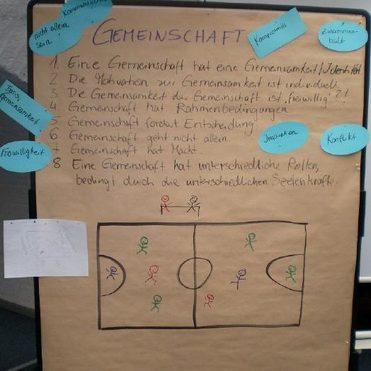 Kommunikation
nicht allein sein
GEMEINSCHAFT
Kompromiß
Zusammenhalt
1 Eine Gemeinschaft hat eine Gemeinsamkeit/Identität
2 Die Motivation zur Gemeinsamkeit ist individuell
3 Die Gemeinsamkeit der Gemeinschaft ist "freiwillig" ?!
4 Gemeinschaft hat Rahmenbedingungen
5 Gemeinschaft fordert Entscheidung
6 Gemeinschaft geht nicht allein
7 Gemeinschaft hat Macht
8 Eine Gemeinschaft hat unterschiedliche Rollen,
bedingt durch die unterschiedlichen Seelenkräfte.
Gemeinsamkeit
Freiwilligkeit
Konflikt